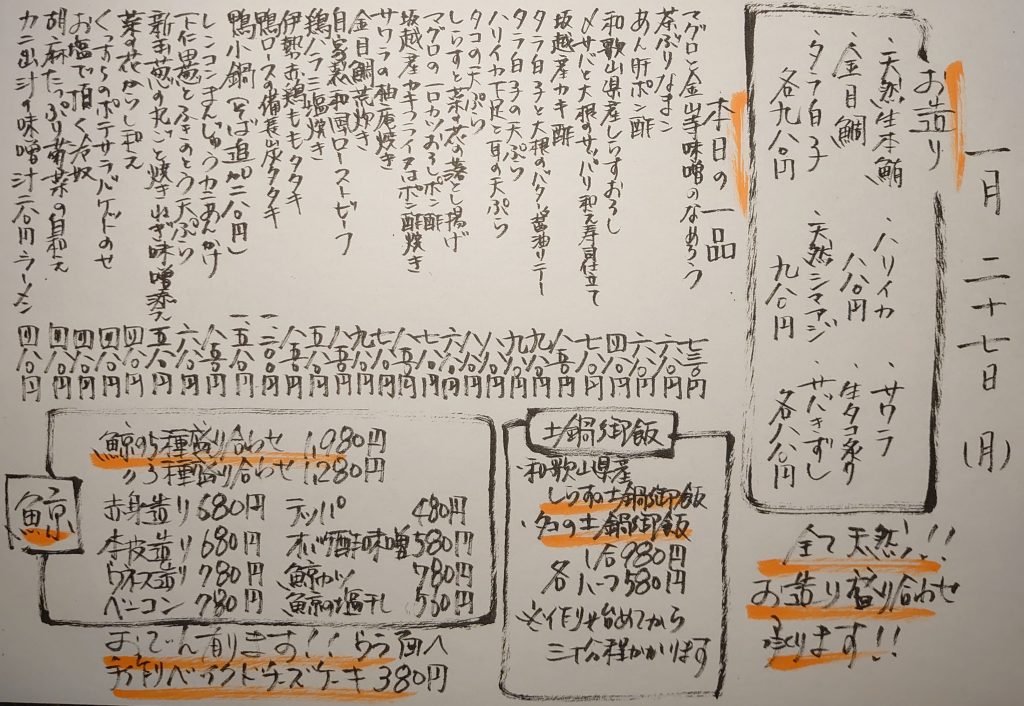 一月二十七日(月)
お造り
・天然生本鮪
・金目鯛
・タラ白子
各九八〇円
・ハリイカ
八八〇円
・天然シマアジ
九八〇円
・サワラ
・生タコ炙り
・サバきずし
各八八〇円
全て天然!!
お造り盛り合わせ
承ります!!
本日の一品
マグロと金山寺味噌のなめろう 七三〇円
茶ぶりなまこ 六八〇円
あん肝ポン酢 六八〇円
和歌山県産しらすおろし 四八〇円
〆サバと大根のサッパリ和え寿司仕立て 七八〇円
坂越産カキ酢 八五〇円
タラ白子と大根のバター醤油ソテー 九八〇円
タラ白子の天ぷら 九八〇円
ハリイカ下足と耳の天ぷら 八八〇円
タコの天ぷら 八八〇円
しらすと菜の花の落とし揚げ 六八〇円
マグロの一口カツおろしポン酢 七八〇円
坂越産カキフライ又はポン酢焼き 八五〇円
サワラの柚庵焼き 七八〇円
金目鯛荒炊き 九八〇円
自家製和風ローストビーフ 八五〇円
鶏ハラミ塩焼き 五八〇円
伊勢赤鶏ももタタキ 八五〇円
鴨ロースの備長山炭タタキ 一、二〇〇円
鴨小鍋(そば追加二八〇円) 一、五八〇円
レンコンまんじゅうカニあんかけ 八五〇円
下仁田葱とふきのとう天ぷら 六八〇円
新玉葱の丸ごと焼きねぎ味噌添え 五八〇円
菜の花からし和え 四八〇円
くんちゃんのポテサラバケットのせ 四八〇円
お塩で頂く冷奴 四八〇円
胡麻たっぷり菊菜の白和え 四八〇円
カニ出汁の味噌汁二八〇円ラーメン 四八〇円
土鍋御飯
・和歌山県産
しらすの土鍋御飯
・タコの土鍋御飯
各 1合980円
ハーフ580円
※作り始めてから
三十分程かかります
鯨
鯨の5種盛り合わせ 1,980円
〃3種盛り合わせ 1,280円
赤身造り 680円 テッパ 480円
本皮造り 680円 オバケ酢味噌 580円
ウネス造り 780円 鯨カツ 780円
ベーコン 780円 鯨の塩干し 550円
おでん有ります!!うら面へ
手作りベイクドチーズケーキ380円